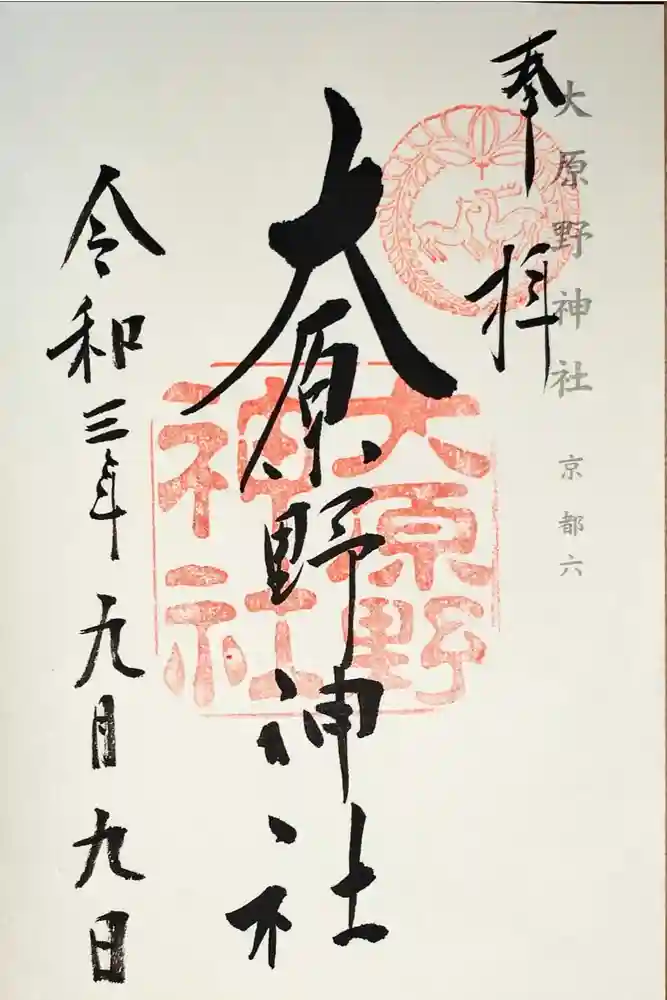 大原野神社 京都六
奉拝
大原野神社
大原野
神社
令和三年九月九日